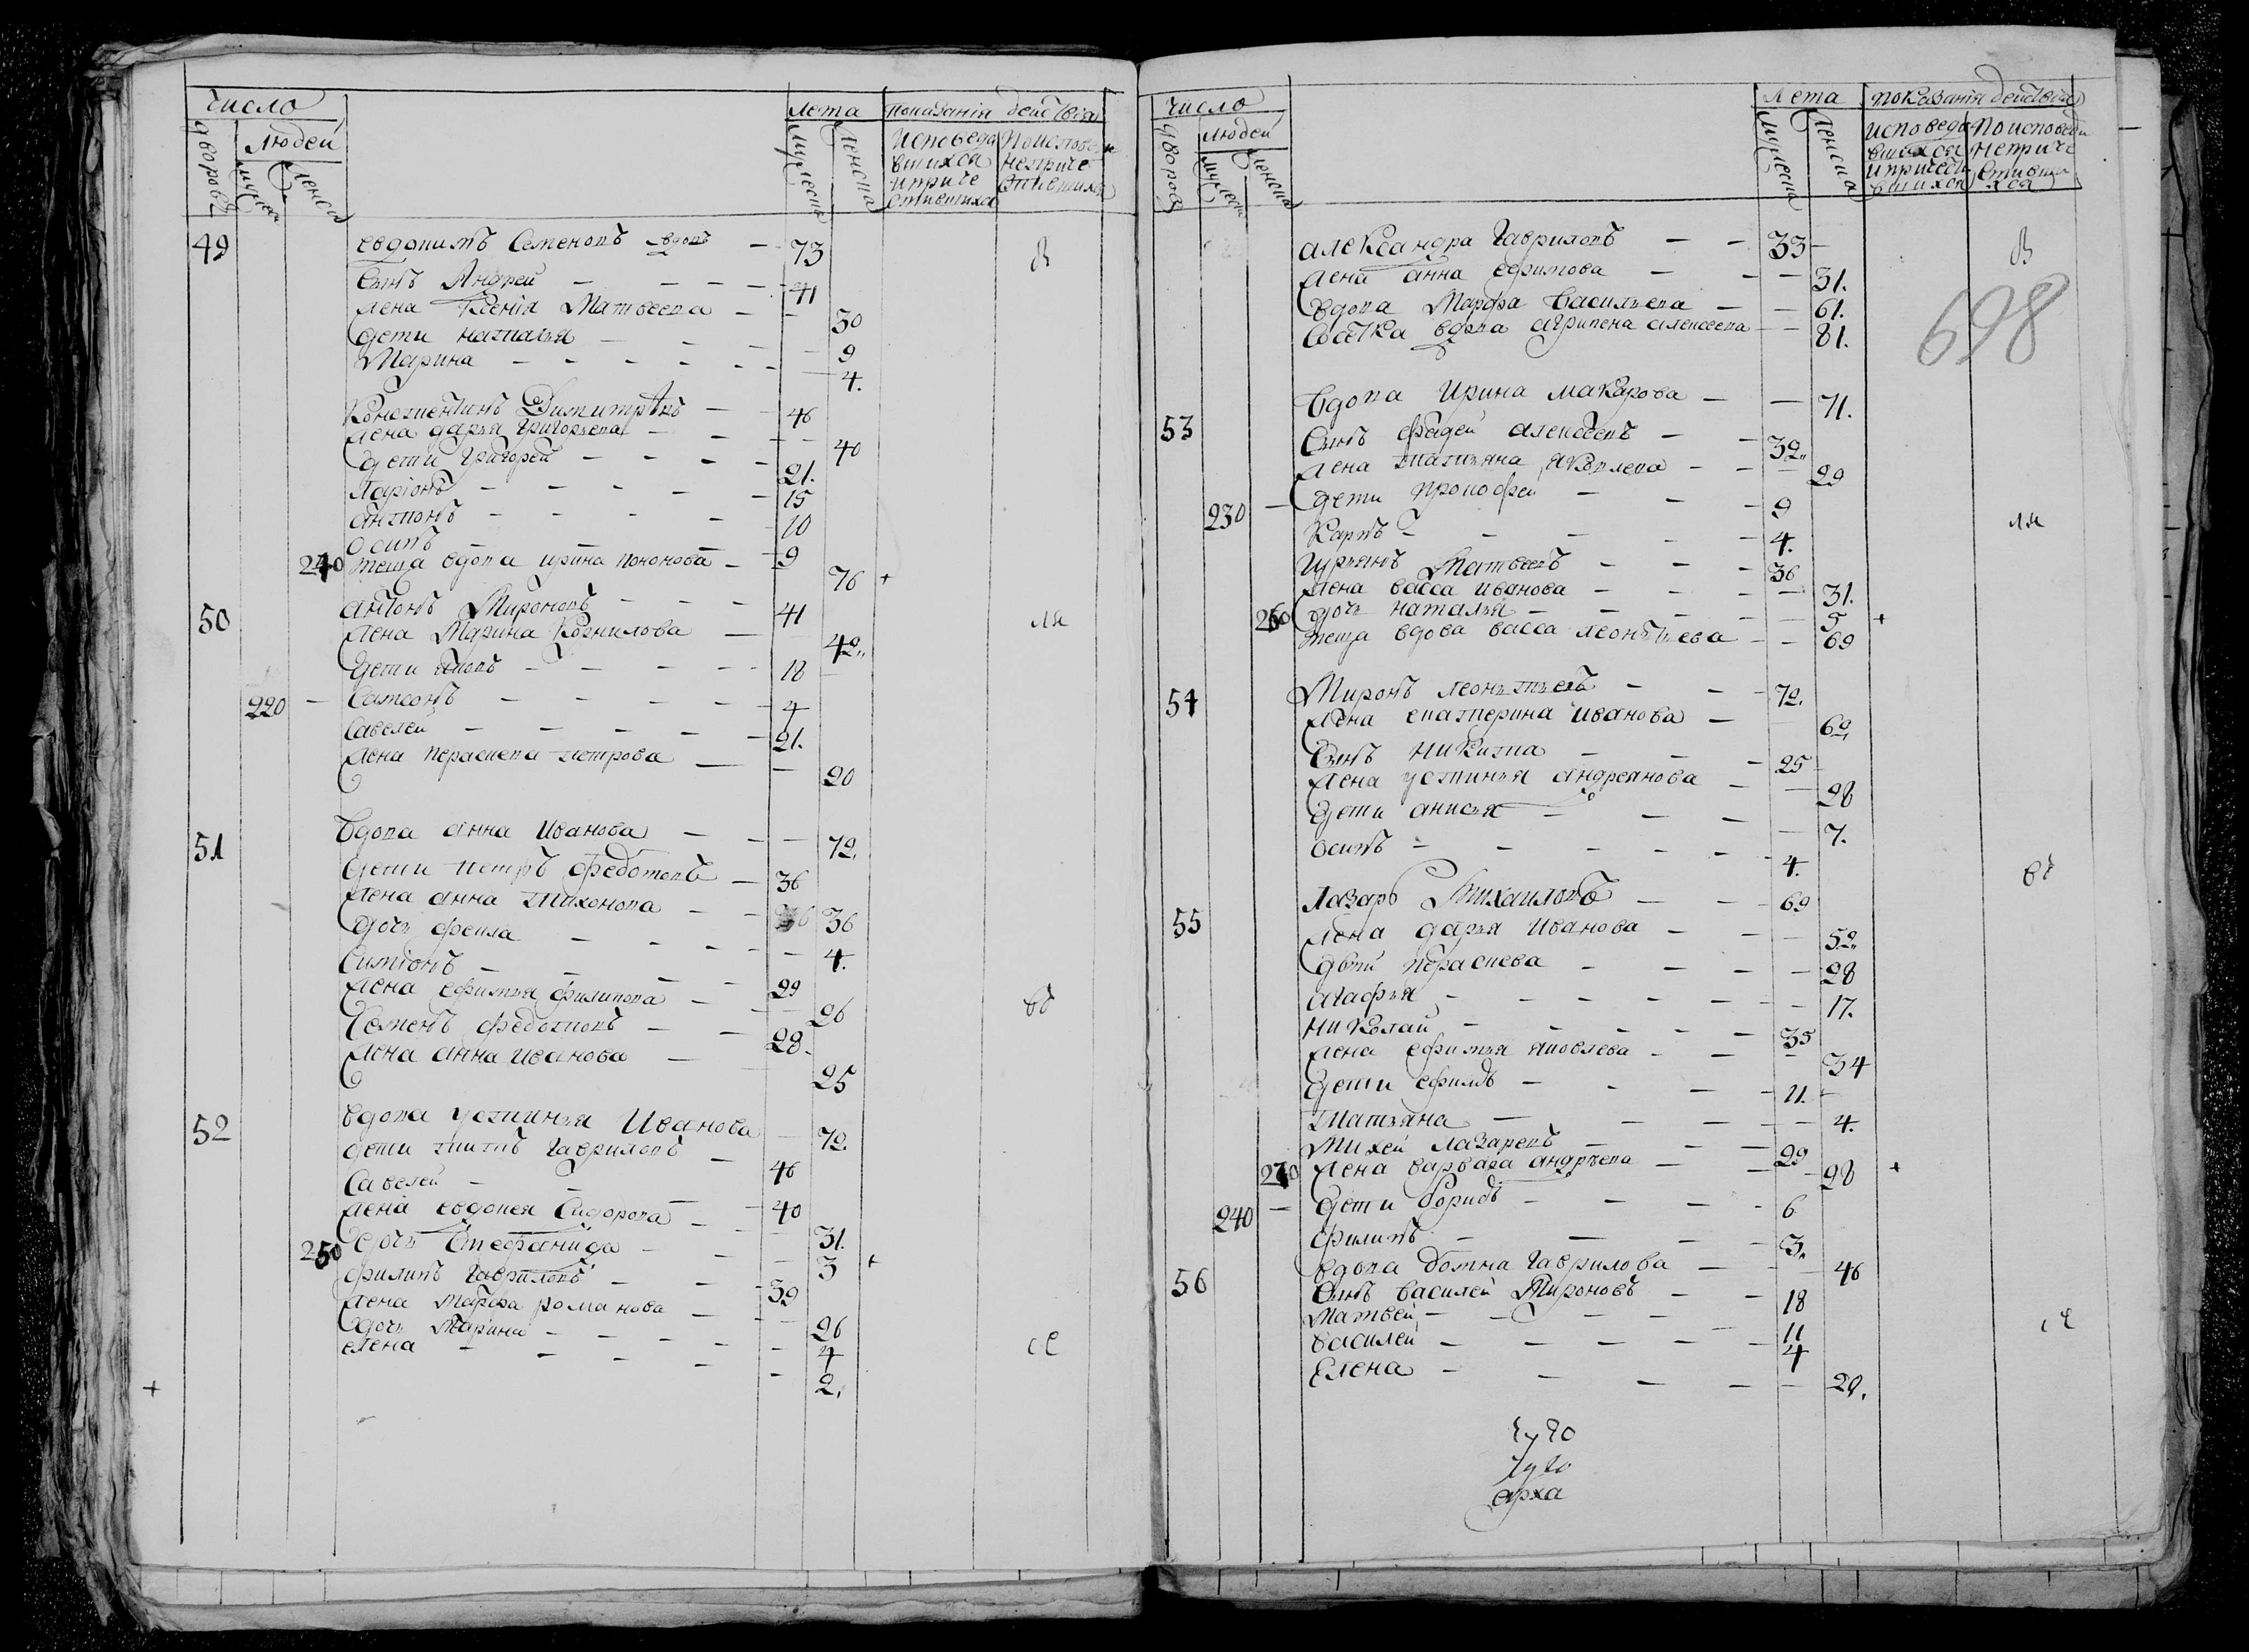 число
лета
показанїя действїя
дворовъ
людей
мужеска
женска
мужеска
женска
исповеда
вшихся
и приче
стившихся
по исповеди
неприче
стившихся
49 евдокимъ Семеновъ вдовъ — 73
Сынъ Андрей — 41
жена Ксенїя Матвеева — 30
дети наталья — 9
Марина — 4.
Констентинъ Димитрѣвъ — 46
жена дарья григорьева — 40
дети григорей — 21.
Ларїонъ — 15
антонъ — 10
осипъ — 9
240 теща вдова ирина кононова — 76 +
50 антонъ Мироновъ — 41
жена Марина Корнилова — 42
дети — 18
220 — Самсонъ — 4
Савелей — 21.
жена параскева петрова — 20
51 вдова анна Иванова — 72.
дети петръ федотовъ — 36
жена анна тихонова — 36
дочь фекла — 4.
Симїонъ — 29
жена ефимья филипова — 26
Семенъ федотовъ — 28.
жена анна иванова — 25
52 вдова устинья Иванова — 72.
дети титъ гавриловъ — 46
Савелей — 40
жена евдокея Сидорова — 31.
250 дочь Стефанида — 3 +
филипъ гавриловъ — 39
жена марфа романова — 26
дочь Марина — 4
елена — 2.
+
число
лета
показанїя действїя
дворовъ
людей
мужеска
женска
мужеска
женска
исповеда
вшихся
и причести
вшихся
по исповеди
неприче
стивши
хся
александра гавриловъ — 33
жена анна ефимова — 31.
вдова Марфа васильева — 61.
вдова агрипена алексеева — 81.
698
53 вдова Ирина макарова — 71.
Сынъ фадей алексеевъ — 32
жена татьяна яковлева — 29
230 — дети прокофей — 9
Карпъ — 4.
гурьянъ Матвеевъ — 36
жена васса иванова — 31.
260 дочь наталья — 5 +
теща вдова васса леонтьева — 69
54 Миронъ леонтьевъ — 72.
жена екатерина иванова — 62
Сынъ никита — 25
жена устинья андреянова — 28
дети анисья — 7.
осипъ — 4.
55 Лазарь Михаиловъ — 69
жена дарья Иванова — 52
дѣти параскева — 28
агафья — 17.
николай — 35
жена ефимья яковлева — 34
дети ефимъ — 11.
татьяна — 4.
михей лазаревъ — 29
270 жена варвара андрѣева — 28 +
240 — дети борисъ — 6
филипъ — 3.
56 вдова домна гаврилова — 46
Сынъ василей Мироновъ — 18
матвей — 11
василей — 4
Елена — 20.
арха